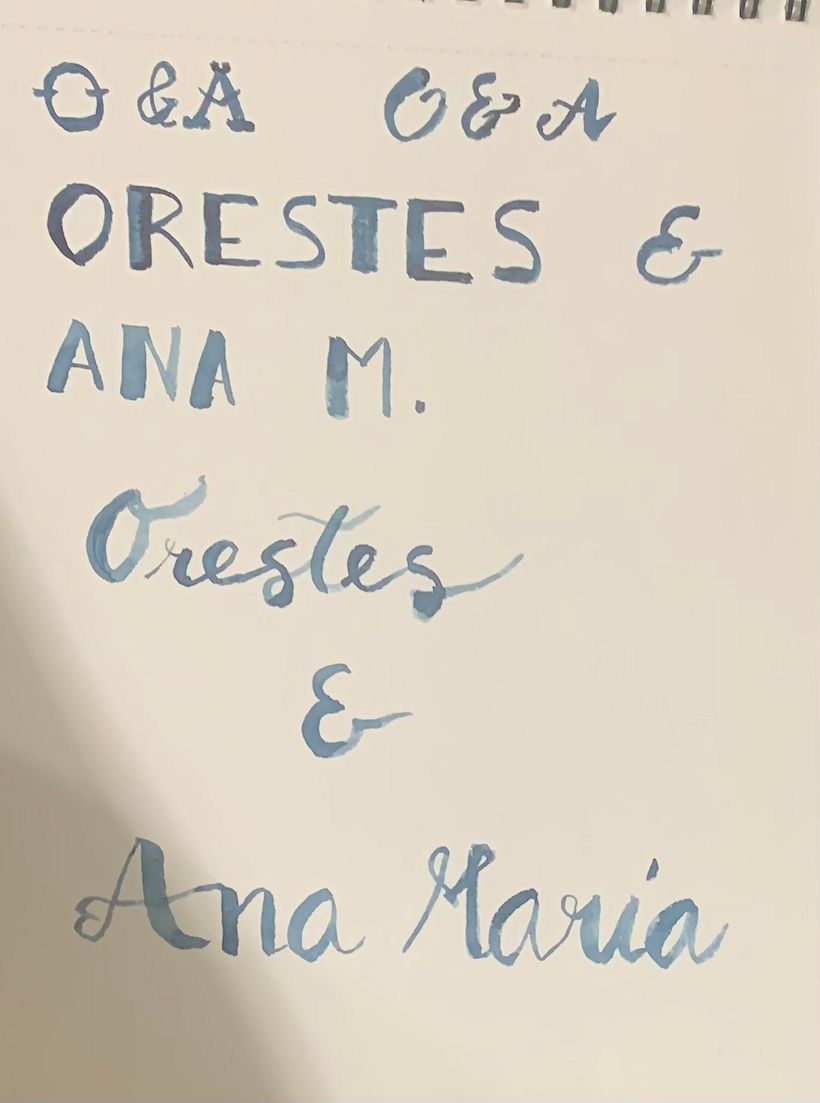 O & A O & A
ORESTES &
ANA M.
Orestes
&
Ana María